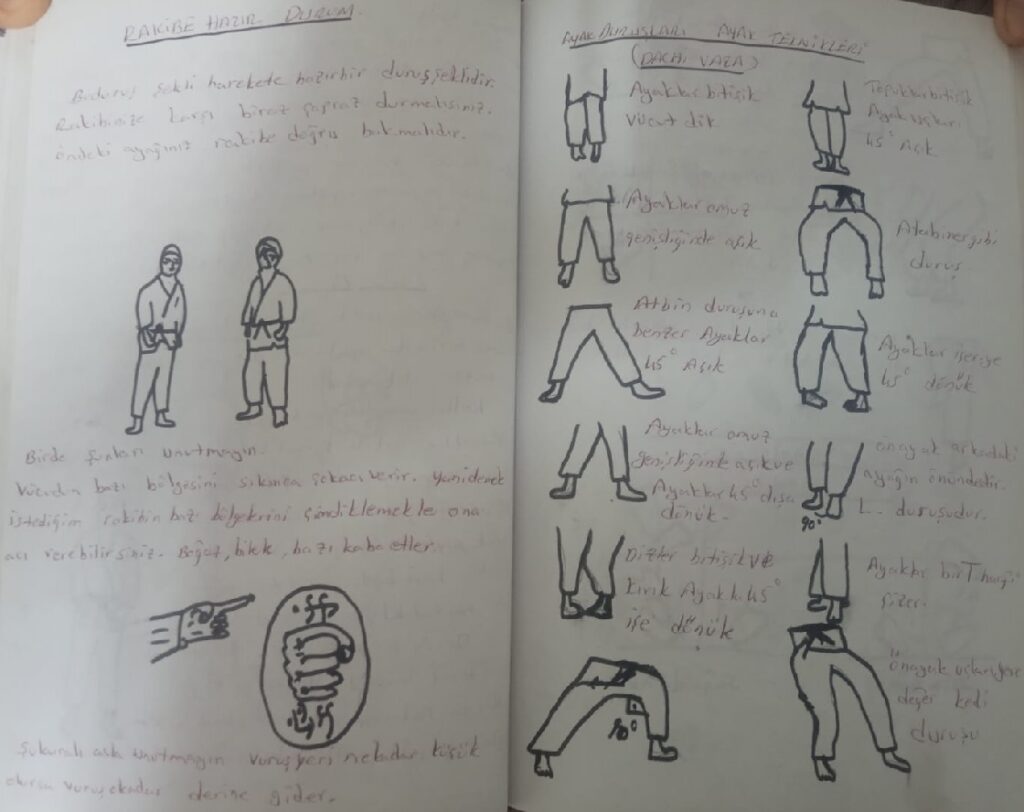 RAKİBE HAZIR DURUM.
Buduruş şekli harekete hazır bir duruş şeklidir.
Rakibinize karşı biraz çapraz durmalısınız.
öndeki ayağınız rakibe doğru bakmalıdır.
Birde şunları unutmayın.
Vücudun bazı bölgesini sıkınca acı verir. Yani demek
istediğim rakibin bazı bölgelerini çimdiklemekle ona
acı verebilirsiniz. Boğaz, bilek, bazı kaba etler.
Şu kuralı asla unutmayın vuruş yeri nekadar küçük
olursa vuruş okadar derine gider.
AYAK DURUŞLARI AYAK TEKNİKLERİ
(DACHI VAZA)
Ayaklar bitişik
vücut dik
Topuklar bitişik
Ayak uçları
45° Açık
Ayaklar omuz
genişliğinde açık
Ata biner gibi
duruş.
Atbin duruşuna
benzer Ayaklar
45° Açık
Ayaklar içeriye
45° dönük
Ayaklar omuz
genişliğinde açık ve
Ayaklar 45° dışa
dönük.
ön ayak arkadaki
ayağın önündedir.
L. duruşudur.
90°
Dizler bitişik ve
kırık Ayaklar 45°
içe dönük
Ayaklar bir T harfi
çizer.
90°
Ön ayak uçları yere
değer kedi
duruşu